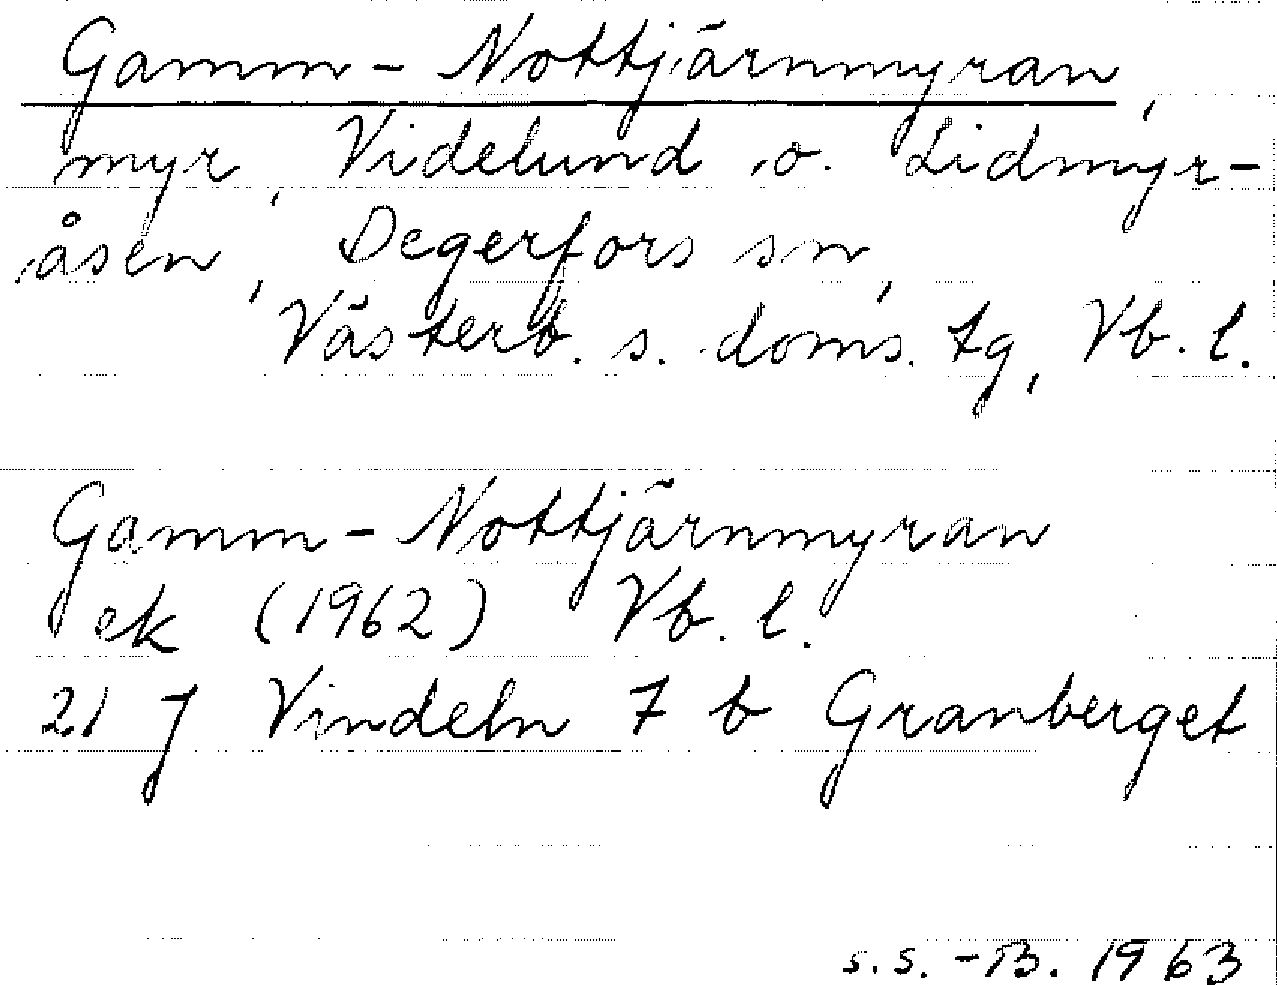 Gamm-Nottjärnmyran,
myr, Videlund o. Lidmyr-
åsen, Degerfors sn,
Västerb. s. doms. tg, Vb. l.
Gamm-Nottjärnmyran
ek (1962) Vb. l.
21 J Vindeln 7 b Granberget
s.s.-B. 1963